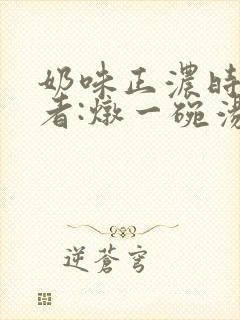 奶味正濃時
者:燉一碗湯
逆蒼穹